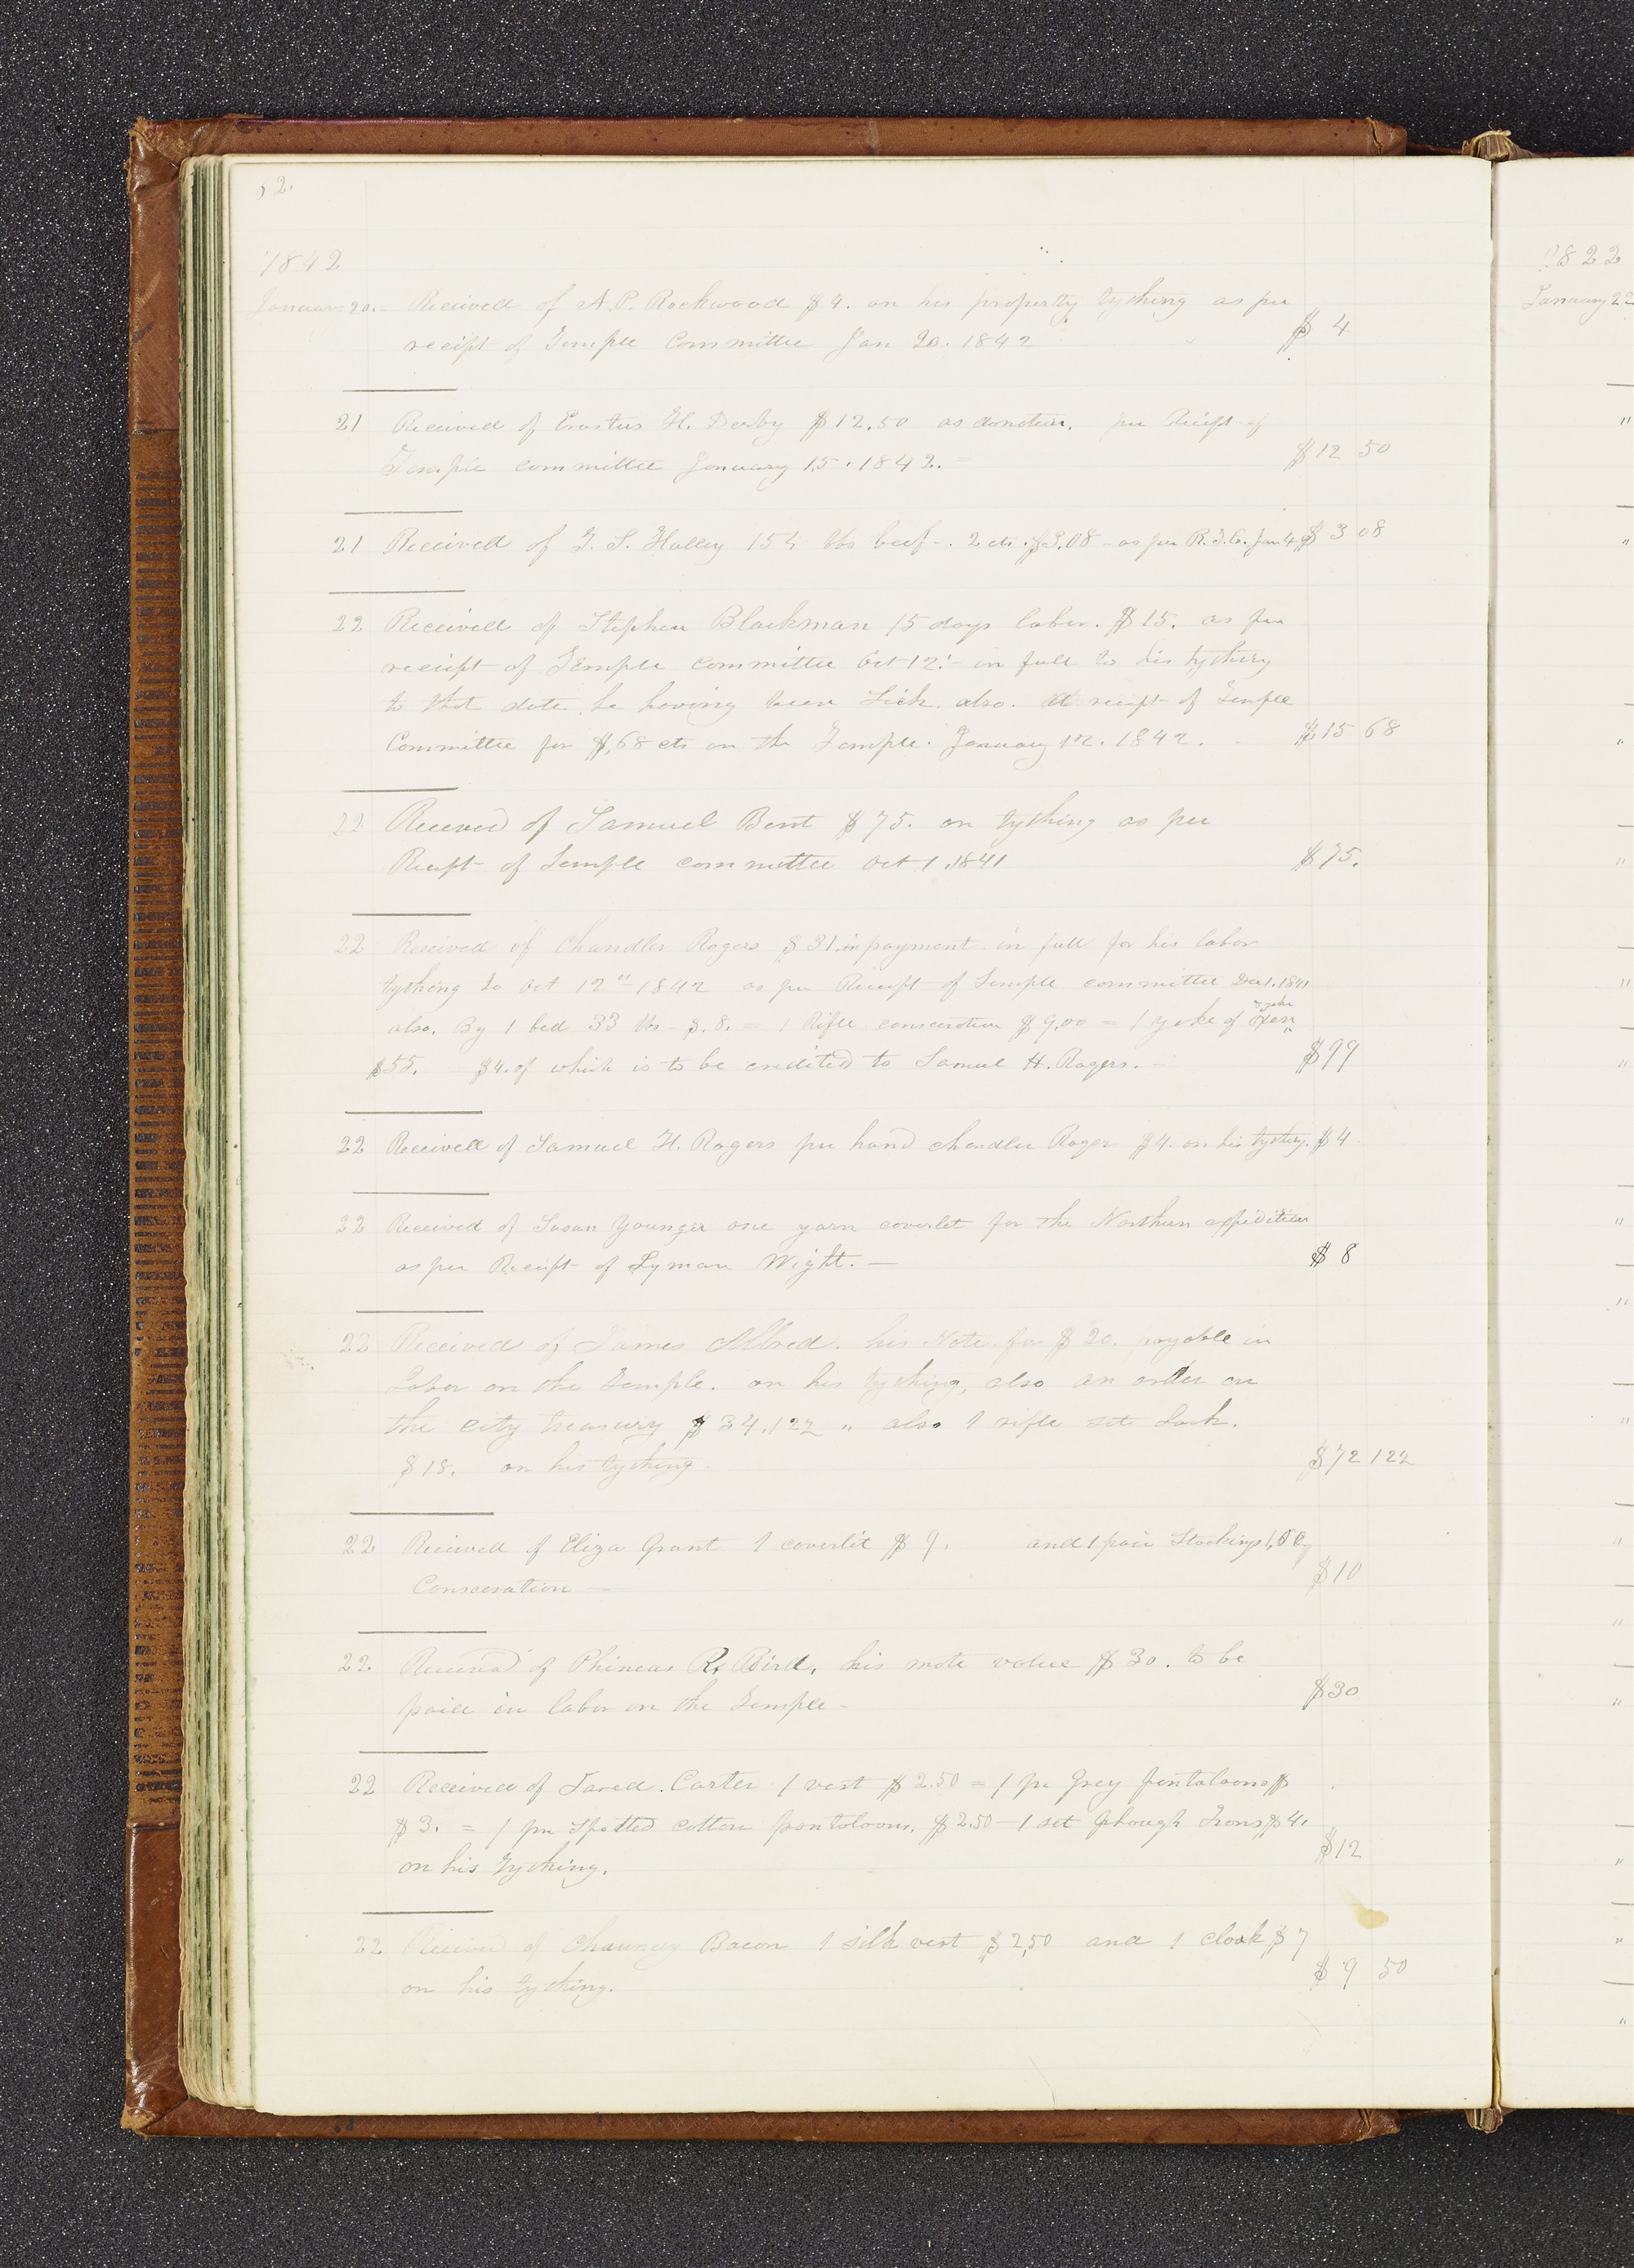 2.
1842
January 20.= Received of A. P. Rockwood $4. on his property tything as per
receipt of Temple Committee Jan 20. 1842
$ 4
21 Received of Erastus H. Derby $12.50 as donation. per Reciept of
Temple committee January 15. 1842. =
$12 50
21 Received of G. S. Holley 154 lbs beef -. 2 cts. $3.08 - as per R. T. C. Jan 4 $ 3 08
22 Received of Stephen Blackman 15 days labor. $15. as per
reciept of Temple committee Oct 12: - in full to his tything
to that date, he having been Sick. also. a reciept of Temple
Committee for $,68 cts on the Temple. January 12. 1842. -
$15 68
22 Received of Samuel Bent $75. on tything as per
Reciept of Temple committee Oct 1. 1841
$75.
22 Received of Chandler Rogers $31. in payment in full for his labor
tything to Oct 12" 1842 as per Reciept of Temple committee Dec 1. 1841
also. By 1 bed 33 lbs - $.8. = 1 Rifle consecration $9.00 = 1 yoke of Oxen
$55. $4. of which is to be credited to Samuel H. Rogers. -
$99
22 Received of Samuel H. Rogers per hand Chandler Roger $4. on his tything. $4
22 Received of Susan Younger one yarn coverlet for the Northern expedition
as per Reciept of Lyman Wight. —
$ 8
22 Received of James Allred. his Note for $20. payable in
Labor on the Temple. on his tything, also an order on
the city treasury $34.122 " also 1 rifle set Lock.
$18. on his tything
$72 122
22 Received of Eliza Grant 1 coverlit $9. and 1 pair Stockings 1,00 by
Consecration —
$10
22 Received of Phineas R. Bird, his note value $30. to be
paid in labor on the Temple -
$30
22 Received of Jared. Carter 1 vest $2.50 = 1 pr Grey pantaloons $
$3. = 1 pr Spotted cotton pantaloons. $2.50 - 1 set Plough Irons $4.
on his Tything.
$12
22 Received of Chauncy Bacon 1 silk vest $2,50 and 1 cloak $7
on his tything.
$ 9 50
1822
January 22